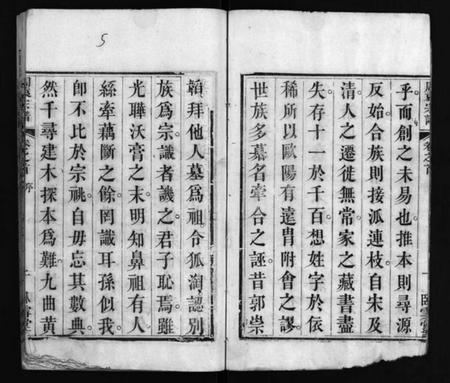 乎而創之未易也推本則尋源
反始合族則接派連枝自宋及
清人之遷徙無常家之藏書盡
失存十一於千百想姓字於依
稀所以歐陽有遠胄附會之謬
世族多慕名牽合之誣昔郭崇
韜拜他人墓為祖令狐淘認別
族為宗識者譏之君子恥焉雖
光聯沃膏之末明知鼻祖有人
絲牽藕斷之餘罔識耳孫似我
即不比於宗祧自毋忘其數典
然千尋建木探本為難九曲黃
5